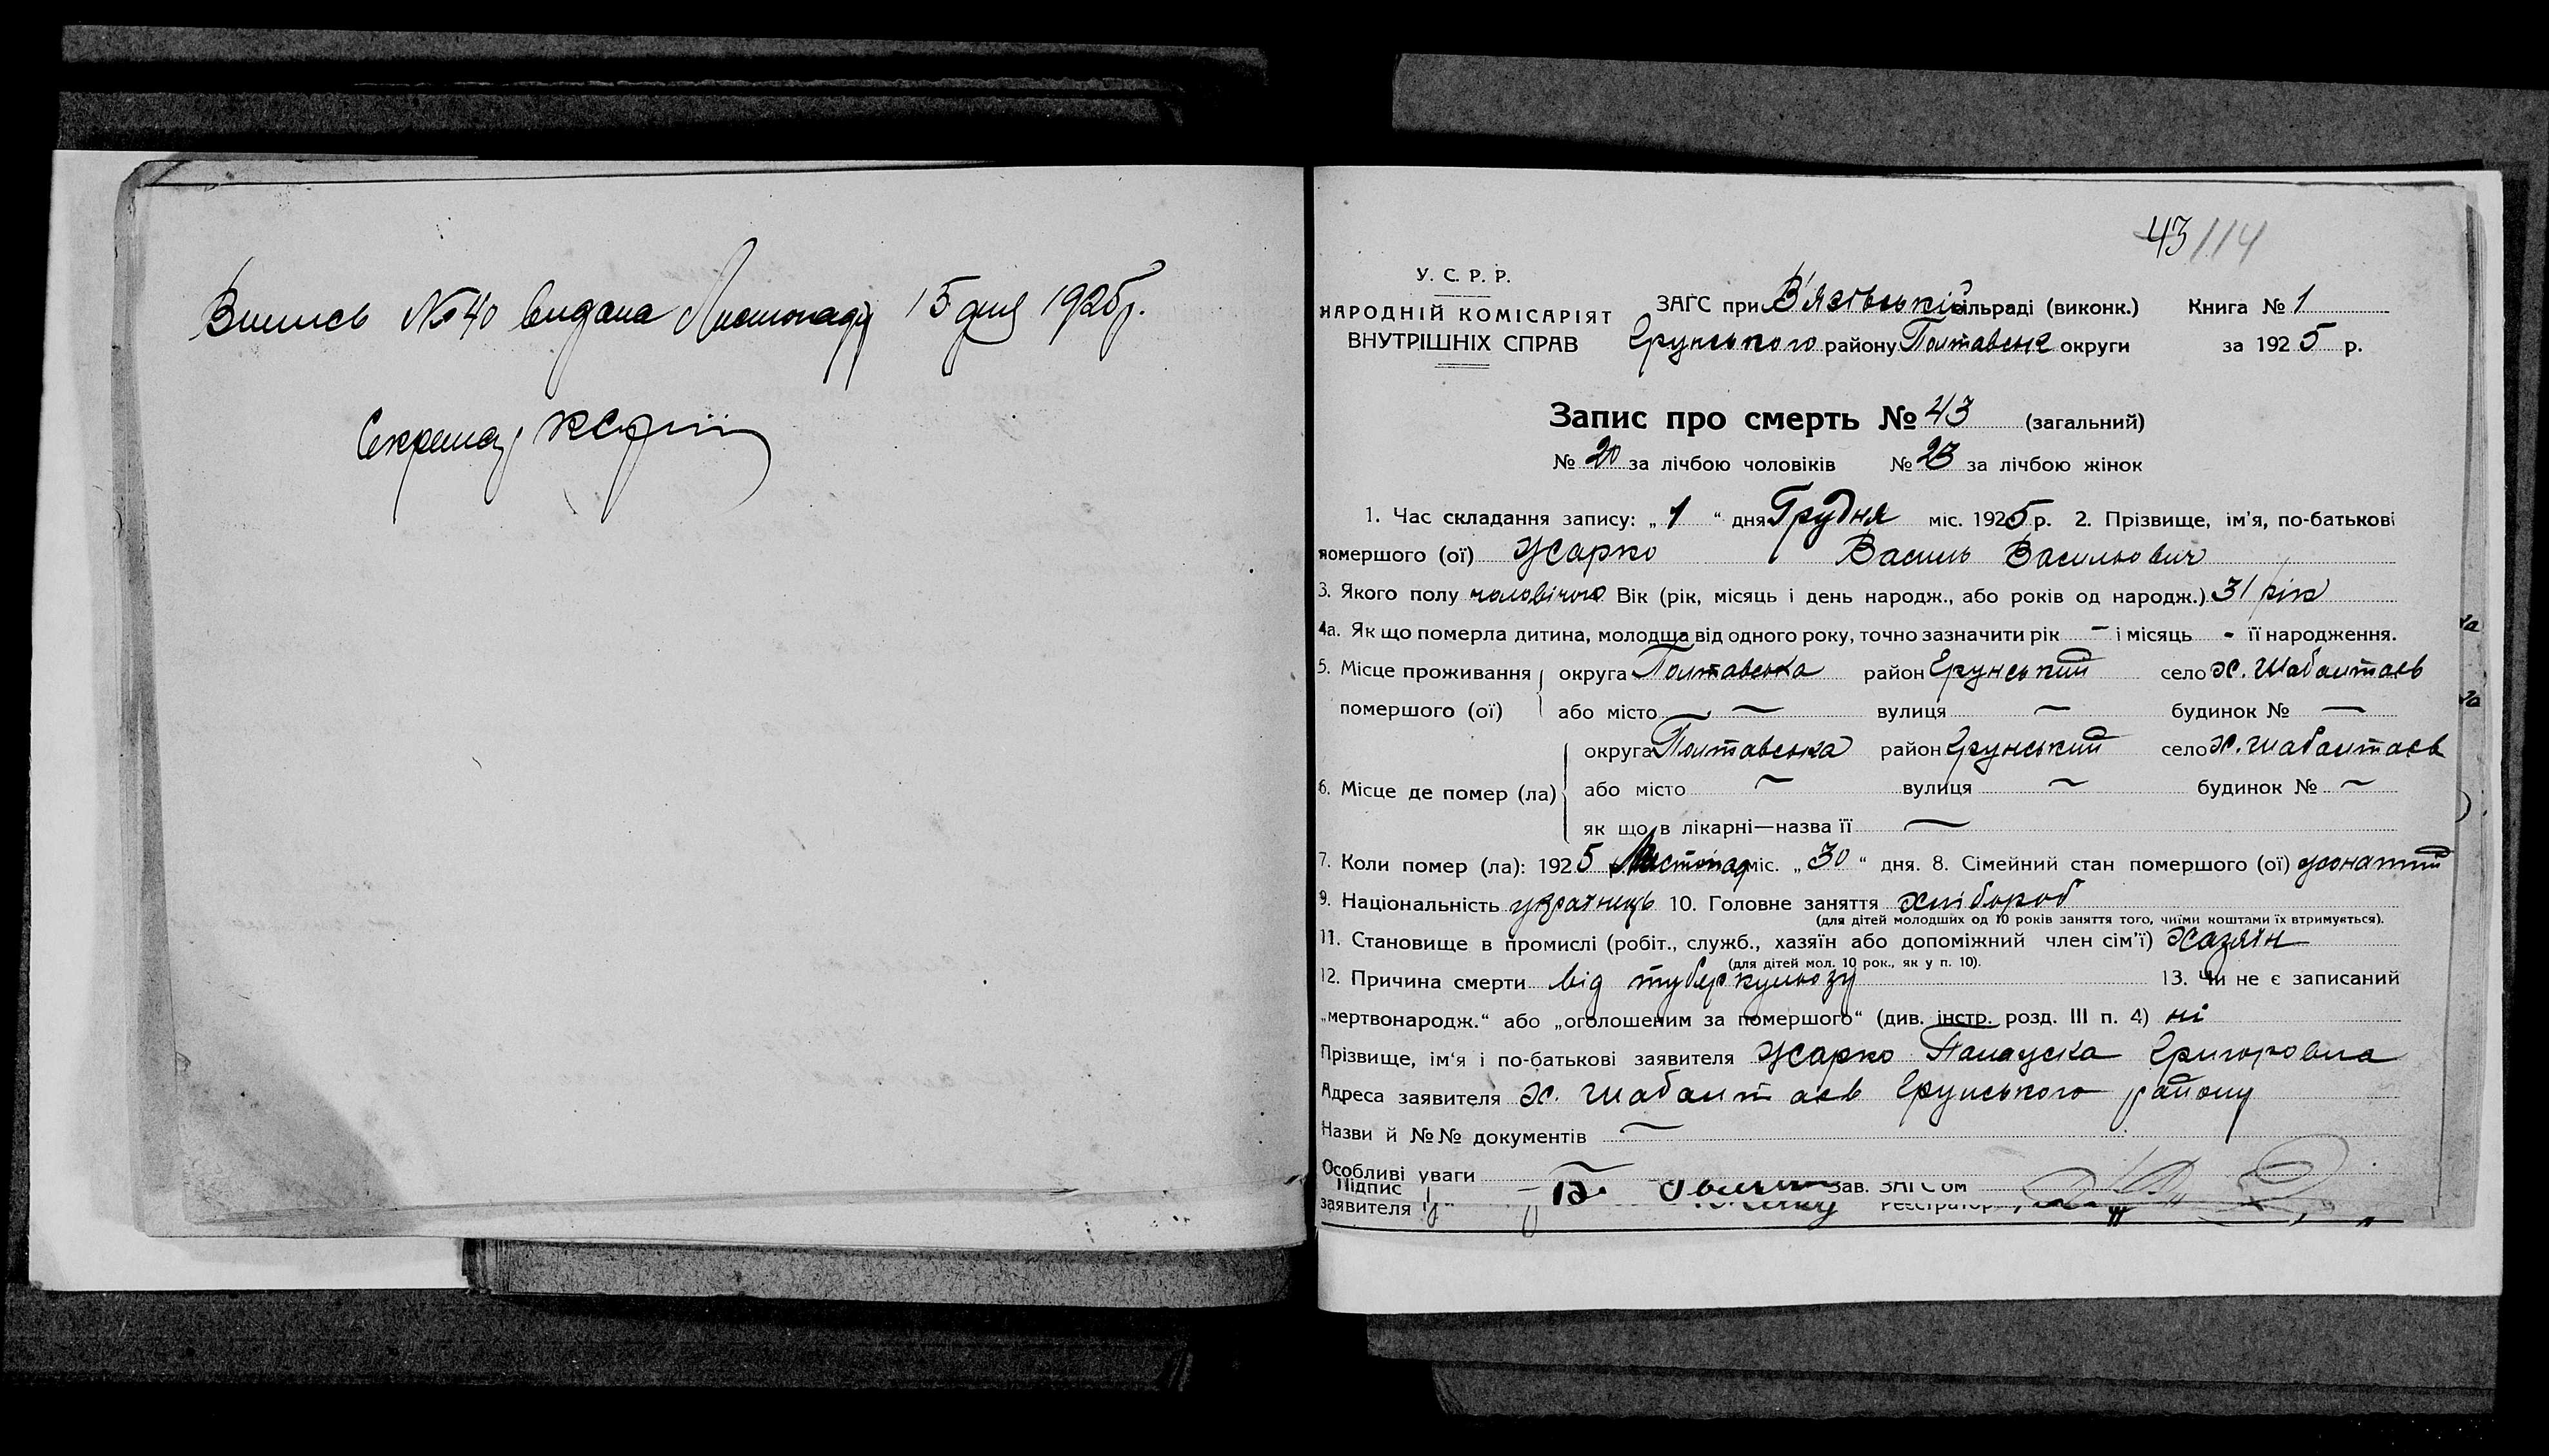 Випись №40 видана Листопаду 15 дня 1925р.
Секретар
43/114
У. С. Р. Р.
НАРОДНІЙ КОМІСАРІЯТ
ВНУТРІШНІХ СПРАВ
ЗАГС при В'язівській сільраді (виконк.) Книга № 1
Грунського району Полтавськ округи за 1925 р.
Запис про смерть № 43 (загальний)
№ 20 за лічбою чоловіків № 23 за лічбою жінок
1. Час складання запису: „ 1 “ дня Грудня міс. 1925 р. 2. Прізвище, ім'я, по-батькові
помершого (ої) Жарко Василь Васильович
3. Якого полу чоловічого Вік (рік, місяць і день народж., або років од народж.) 31 рік
4а. Як що померла дитина, молодща від одного року, точно зазначити рік — і місяць - її народження.
5. Місце проживання округа Полтавська район Грунський село х. Шабалтаєв
помершого (ої) або місто — вулиця — будинок № —
округа Полтавська район Грунський село х. Шабалтаєв
6. Місце де помер (ла) або місто ~ вулиця ~ будинок № ~
як що в лікарні—назва її —
7. Коли помер (ла): 1925 Листопад міс. „ 30 “ дня. 8. Сімейний стан помершого (ої) жонатий
9. Національність українець 10. Головне заняття хлібороб
(для дітей молодших од 10 років заняття того, чиїми коштами їх втримується).
11. Становище в промислі (робіт., служб., хазяїн або допоміжний член сім'ї) Хазяїн
(для дітей мол. 10 рок., як у п. 10).
12. Причина смерти від туберкульозу 13. Чи не є записаний
„мертвонародж.“ або „оголошеним за помершого“ (див. інстр. розд. III п. 4) ні
Прізвище, ім'я і по-батькові заявителя Жарко Григоровна
Адреса заявителя х. Шабалтаєв Грунського району
Назви й №№ документів ~
Особливі уваги ~
Підпис Зав. ЗАГСом
заявителя Реєстратор